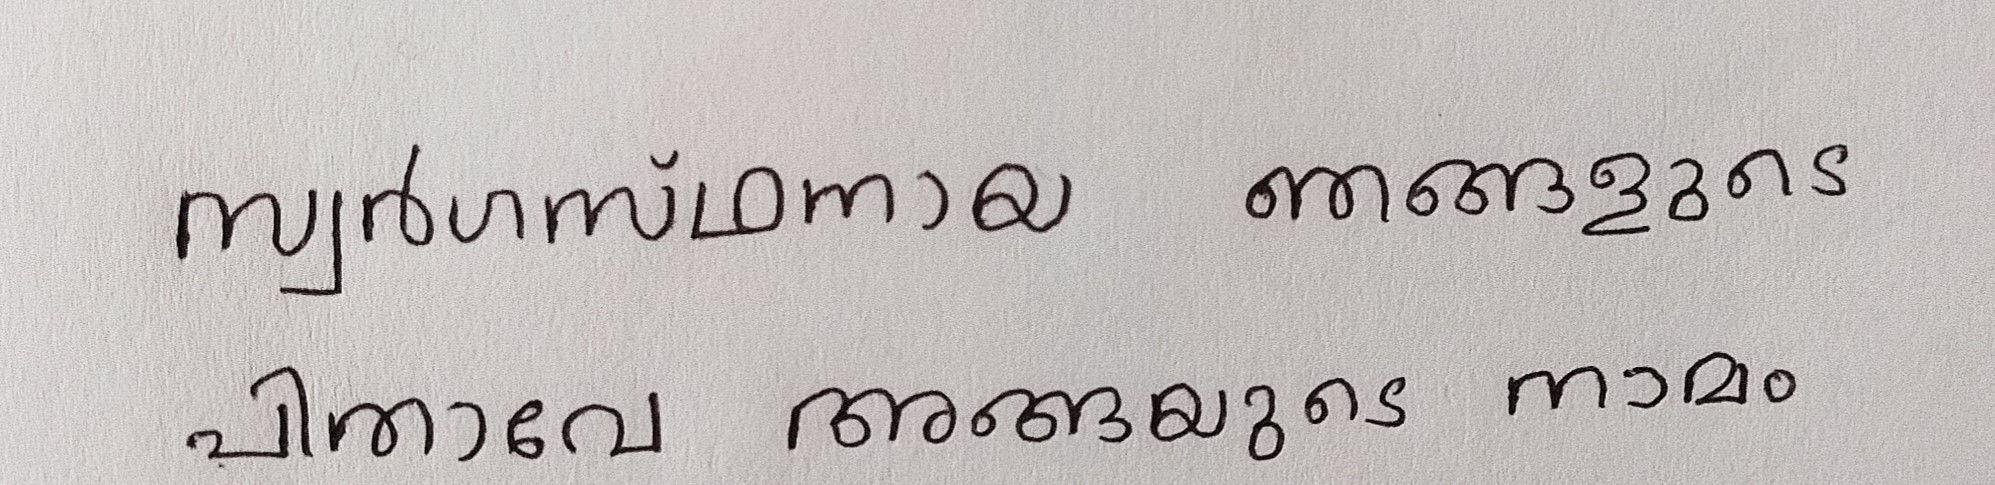 സ്വർഗസ്ഥനായ ഞങ്ങളുടെ
പിതാവേ അങ്ങയുടെ നാമം